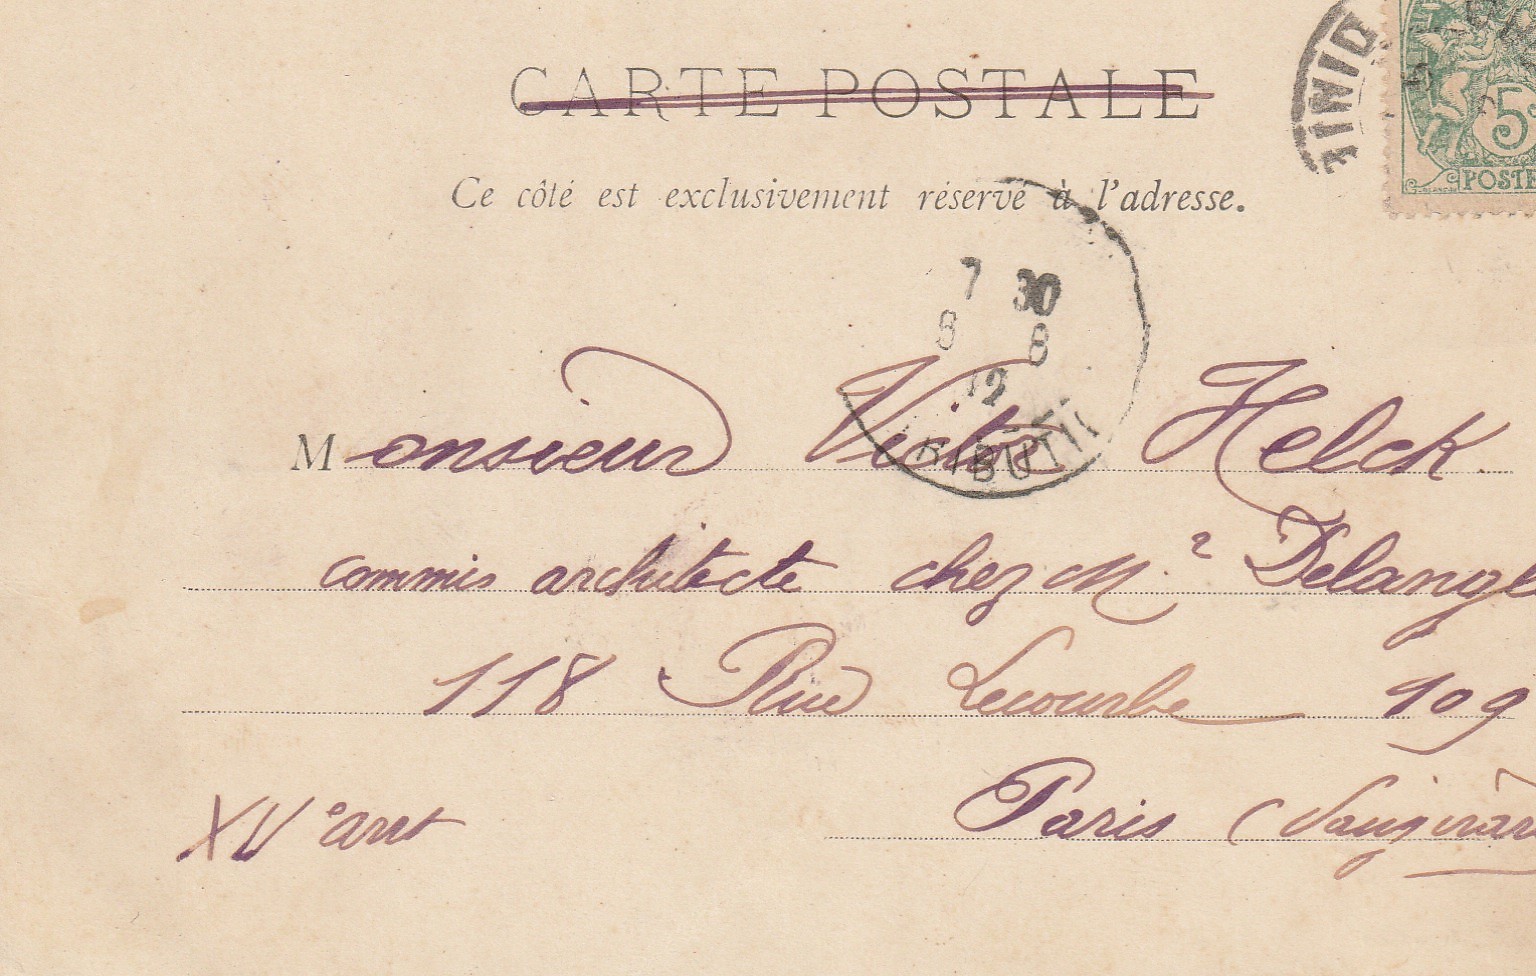 CARTE POSTALE
5
POSTE
Ce côté est exclusivement réservé à l'adresse.
7 30
8 8
12
RIBUTI
Monsieur Victor Helck
commis architecte chez Mr Delangl
118 Rue Lecourbe 109
Paris (Vaugirar
XVe arrt